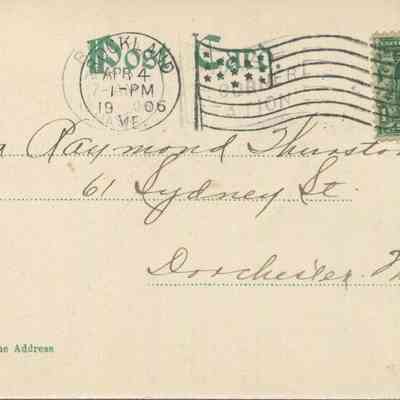 Post Card.
ROCKLAND
APR 4
7-1 PM
1906
ME.
a Raymond Thurston
61 Sydney St.
Dorchester. M
he Address